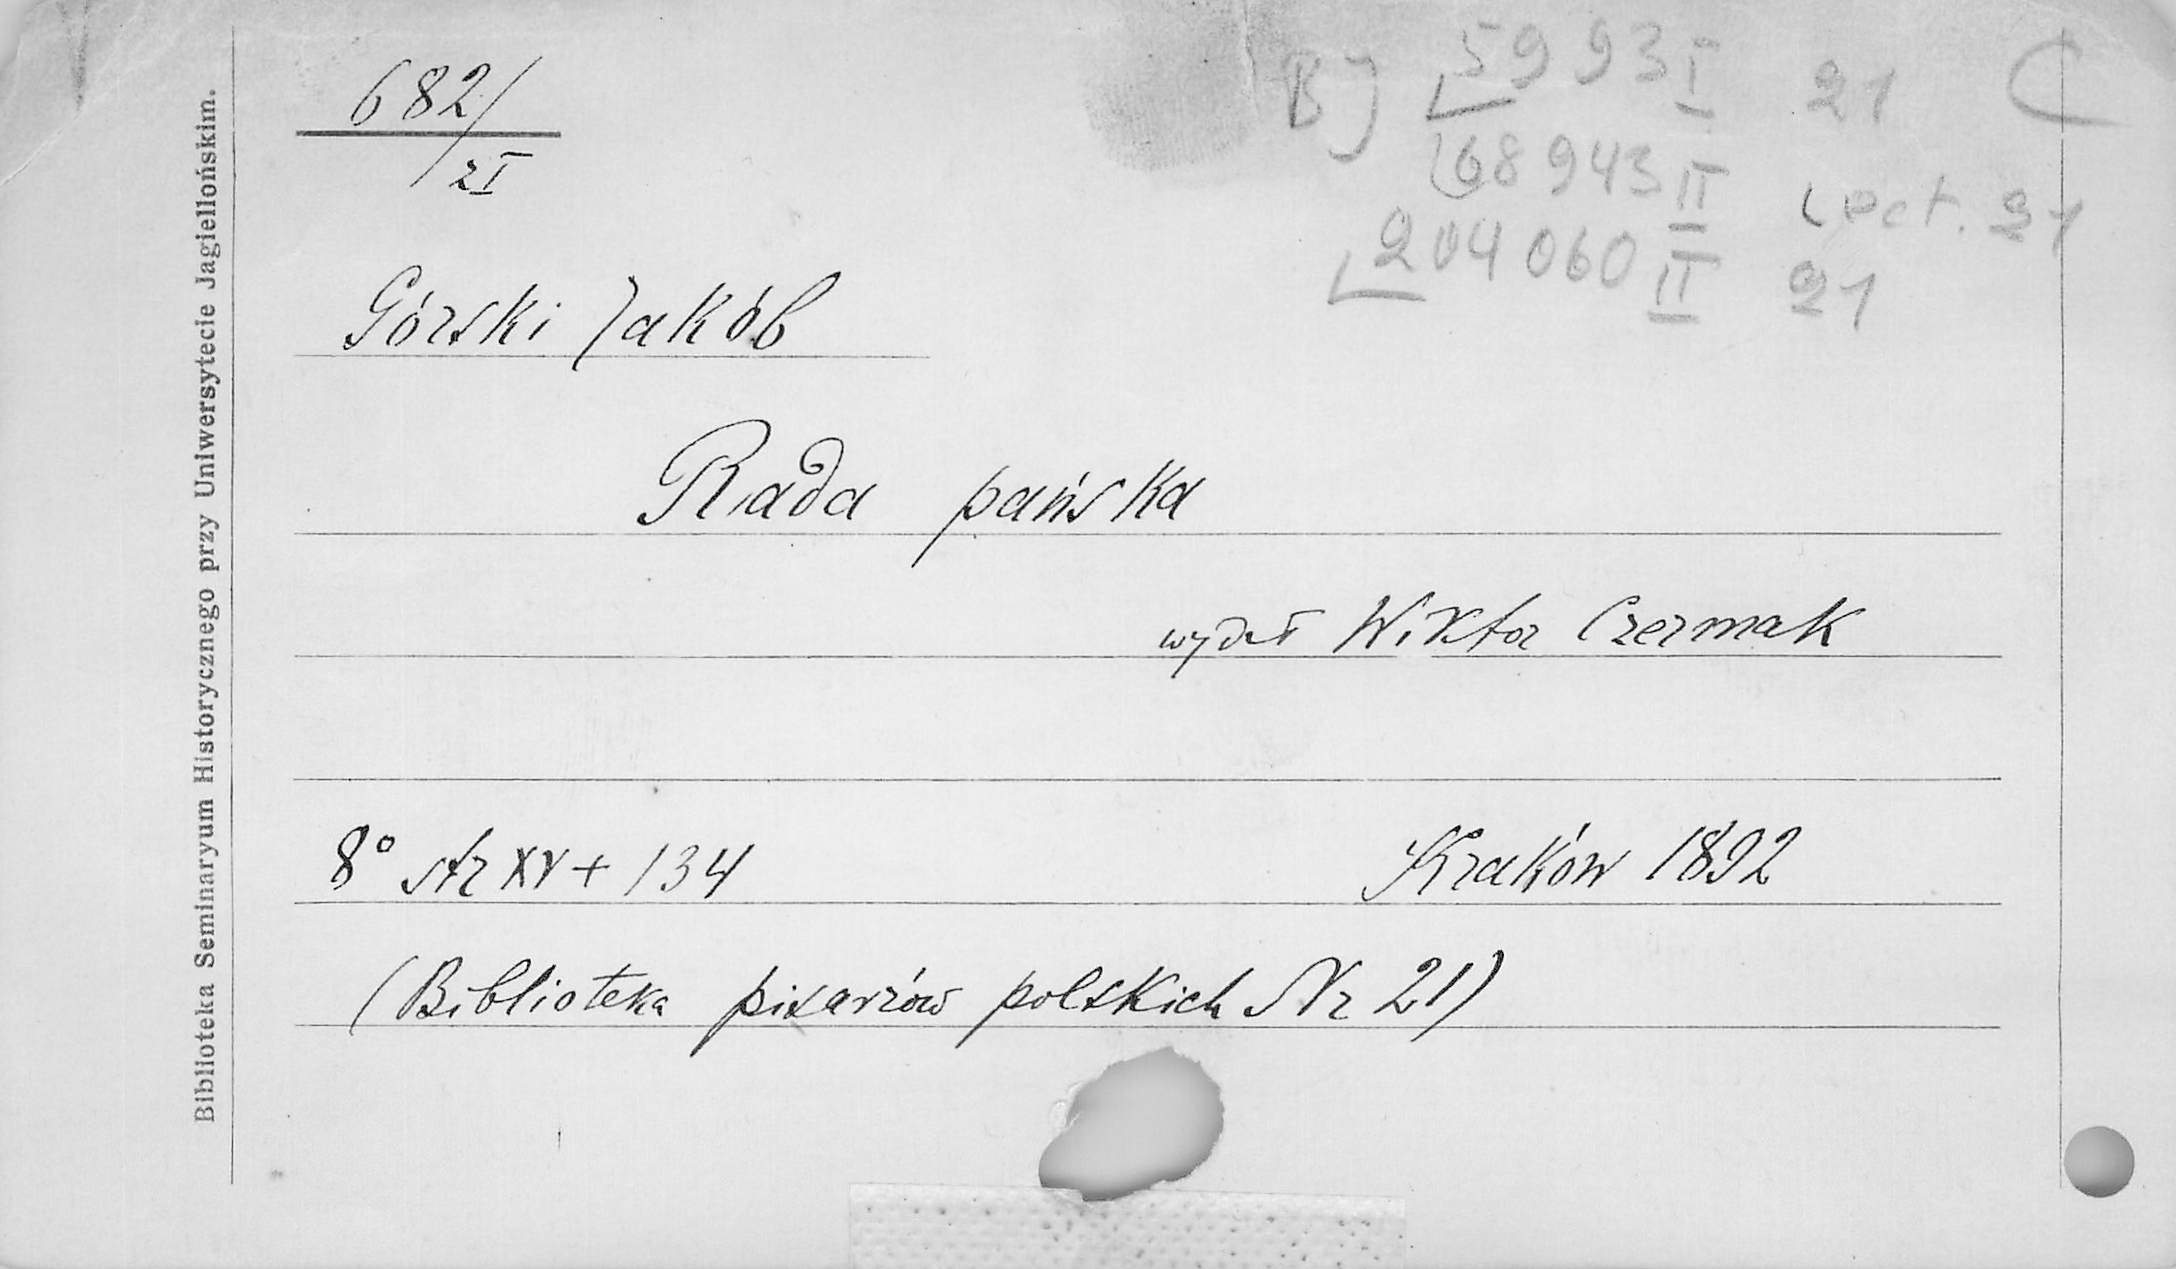 682/
zI
BJ 5993 I 21 C
68943 II Lect. 21
204060 II 21
Górski Jakób
Rada pańska
wydał Wiktor Czermak
8° str XV + 134 Kraków 1892
(Biblioteka pisarzów polskich Nr 21)
Biblioteka Seminaryum Historycznego przy Uniwersytecie Jagiellońskim.